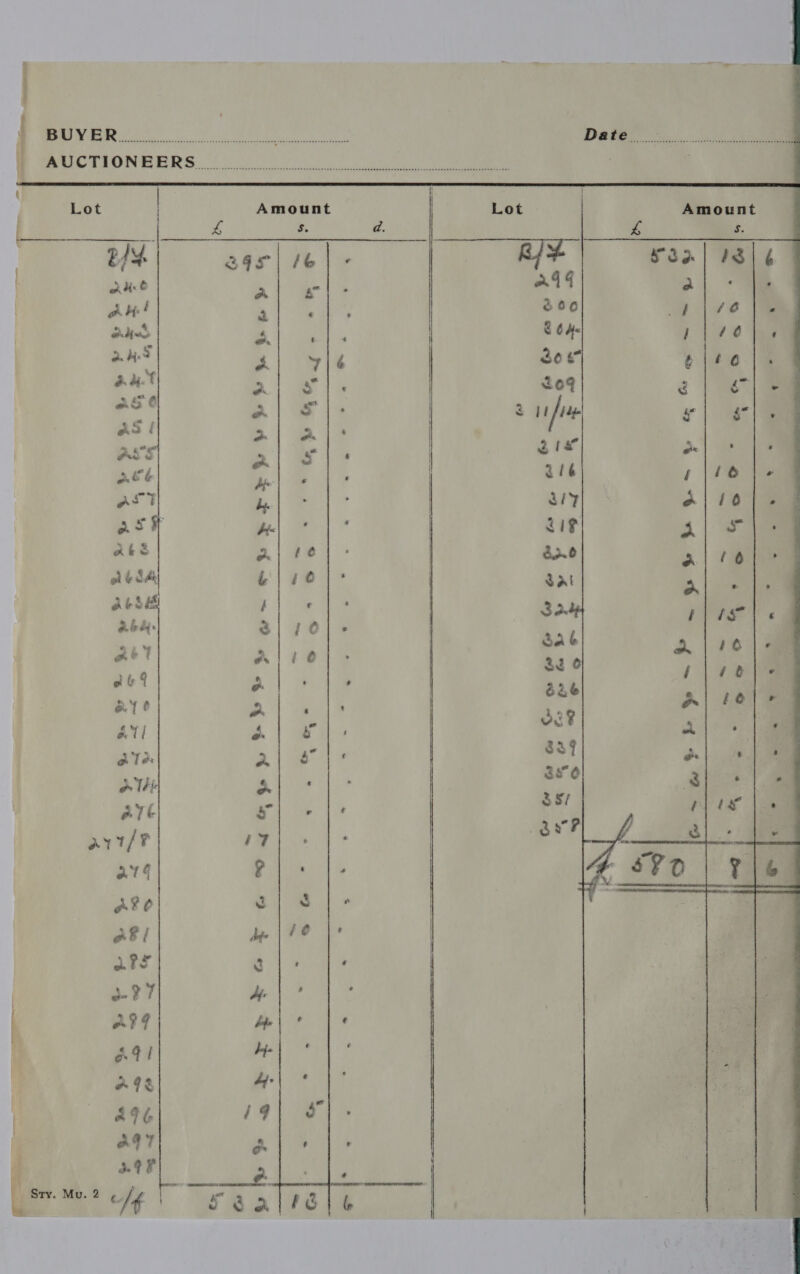 BUYER Date
AUCTIONEERS
Lot Amount Lot Amount
£ s. d. £ s.
B/F 395 16 - B/F 532 13 6
240 2 5 - 299 2 - -
241 3 - - 300 1 10 -
243 2 - - 304 1 10 -
245 2 7 6 305 1 10 -
247 2 5 - 309 3 5 -
250 2 5 - 311/14 5 5 -
251 2 2 - 315 2 - -
255 2 5 - 316 1 10 -
256 4 - - 317 2 10 -
257 4 - - 318 2 5 -
258 4 - - 320 2 10 -
263 2 10 - 321 2 - -
263A 6 10 - 324 1 15 -
263B 1 - - 326 2 10 -
264 3 10 - 330 1 10 -
267 2 10 - 336 2 10 -
269 2 - - 338 2 - -
270 2 - - 339 2 - -
271 2 5 - 350 3 - -
272 2 5 - 351 1 15 -
274 2 - - 358 3 - -
276 5 - - £ 580 8 6
277/8 17 - -
279 8 - -
280 3 3 -
281 4 10 -
285 3 - -
287 4 - -
289 4 - -
291 4 - -
293 4 - -
296 19 5 -
297 2 - -
298 2 - -
Sty. Mu. 2 c/f 532 13 6